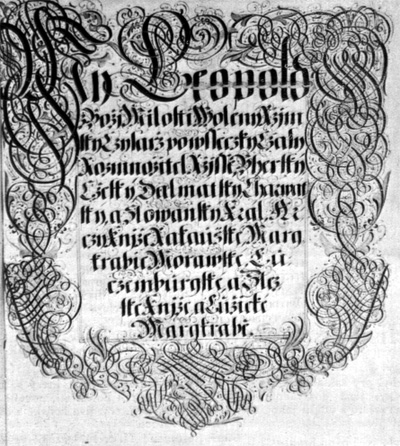 My Leopold
Boži Milosti Wolený Ržim
ský Cysarž powssecky Czasy
Rozmnožitel Ržissě Uhersky
Czesky Dalmatsky Charwat
sky, a Slowansky Kral, Ar
cy Kniže Rakauske Marg
krabie Morawske, Lu
czemburgske a Slez
ske Kniže a Lužické
Margkrabě.